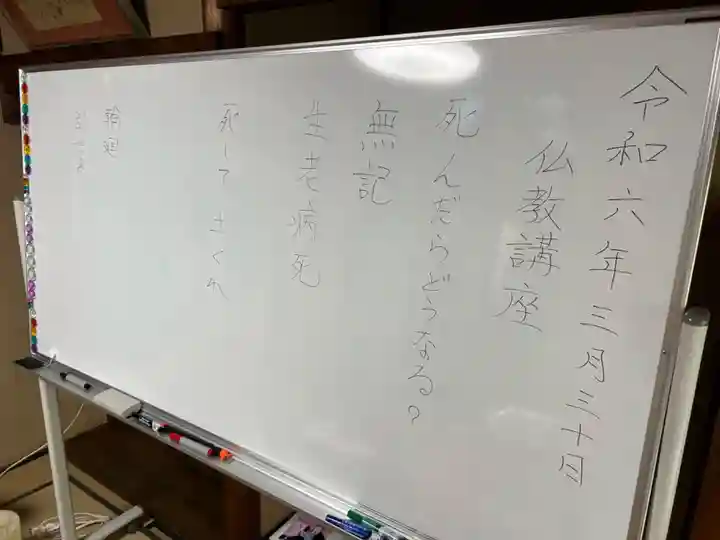 令和六年三月三十日
仏教講座
死んだらどうなる?
無記
生老病死
死して土くれ
輪廻